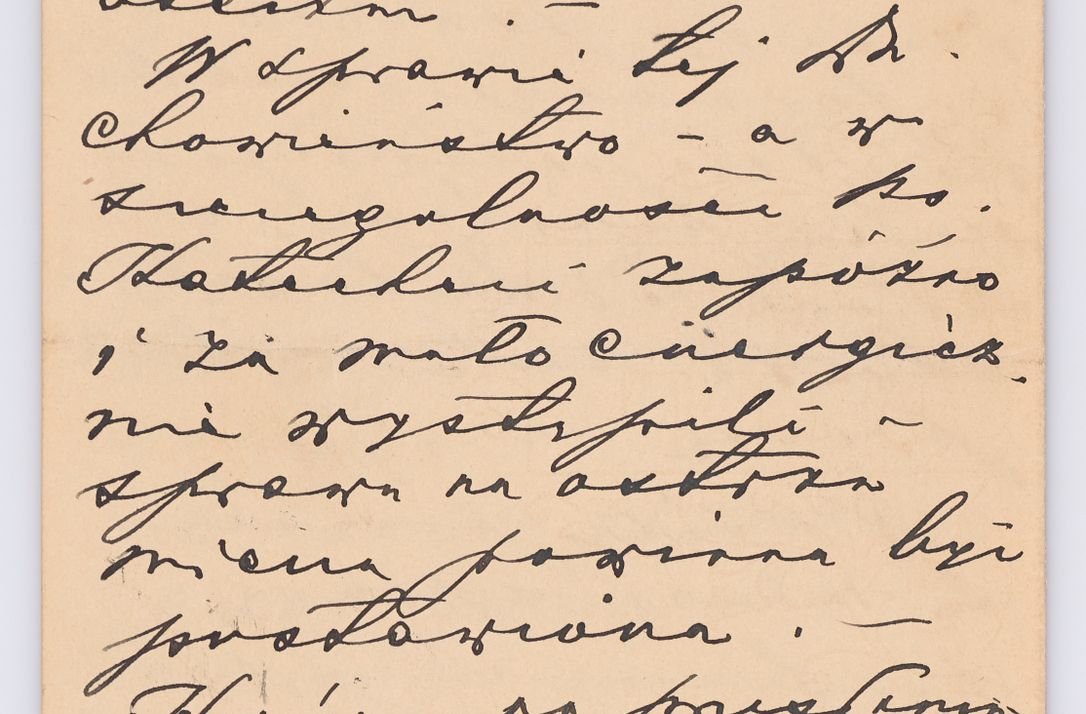 W sprawie tej Du-
chowieństwo - a w
szczególności ks.
Katecheci zapóźno
i za mało energicz-
nie wystąpili -
sprawa na ostrzu
miecza powinna być
postawiona. -